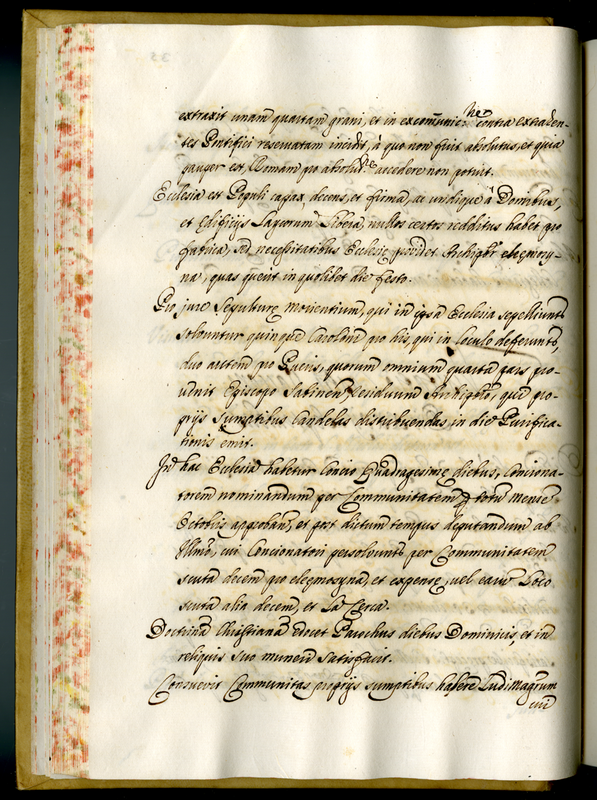 extraxit unam quartam grani, et in excom̄unic:nẽ contra extraden-
tes Pontifici reservatam incidit, à quo non fuit absolutus, et quia
pauper est, Romam pro absolut.ne accedere non potuit.
Ecclesia est Populi capax, decens, et firma, ac undique à Domibus,
et Ædificijs Laycorum libera, nullos certos redditus habet pro
fabrica, sed necessitatibus Ecclesię providet Archipbr̃ eleęmosy-
na, quas querit in quolibet die festo.
Pro jure Sepulturę morientium, qui in ipsa Ecclesia sepelliunt̃
solvuntur quinque Carolom̃ pro his, qui in loculo deferunt̃,
duo autem pro Pueris, quorum omnium quarta pars pro-
venit Episcopo Sabinen̄ residuum Archipbr̃o, qui pro-
prijs sumptibus Candelas distribuendas in die Purifica-
tionis emit.
In hac Ecclesia habetur Concio Quadragesimę diebus, Conciona-
torem nominandum per Communitatem totũ mense
Octobris approban̄, et post dictum tempus deputandum ab
Ill̃mo, cui Concionatori persolvunt̃ per Communitatem
scuta decem pro eleęmosyna, et expensę, vel earũ loco
scuta alia decem, et La Cerca.
Doctrinã Christianã docet Parochus diebus Dominicis, et in
reliquis suo muneri satisfacit.
Consuevit Communitas proprijs sumptibus habere Ludi Magr̃um
cui